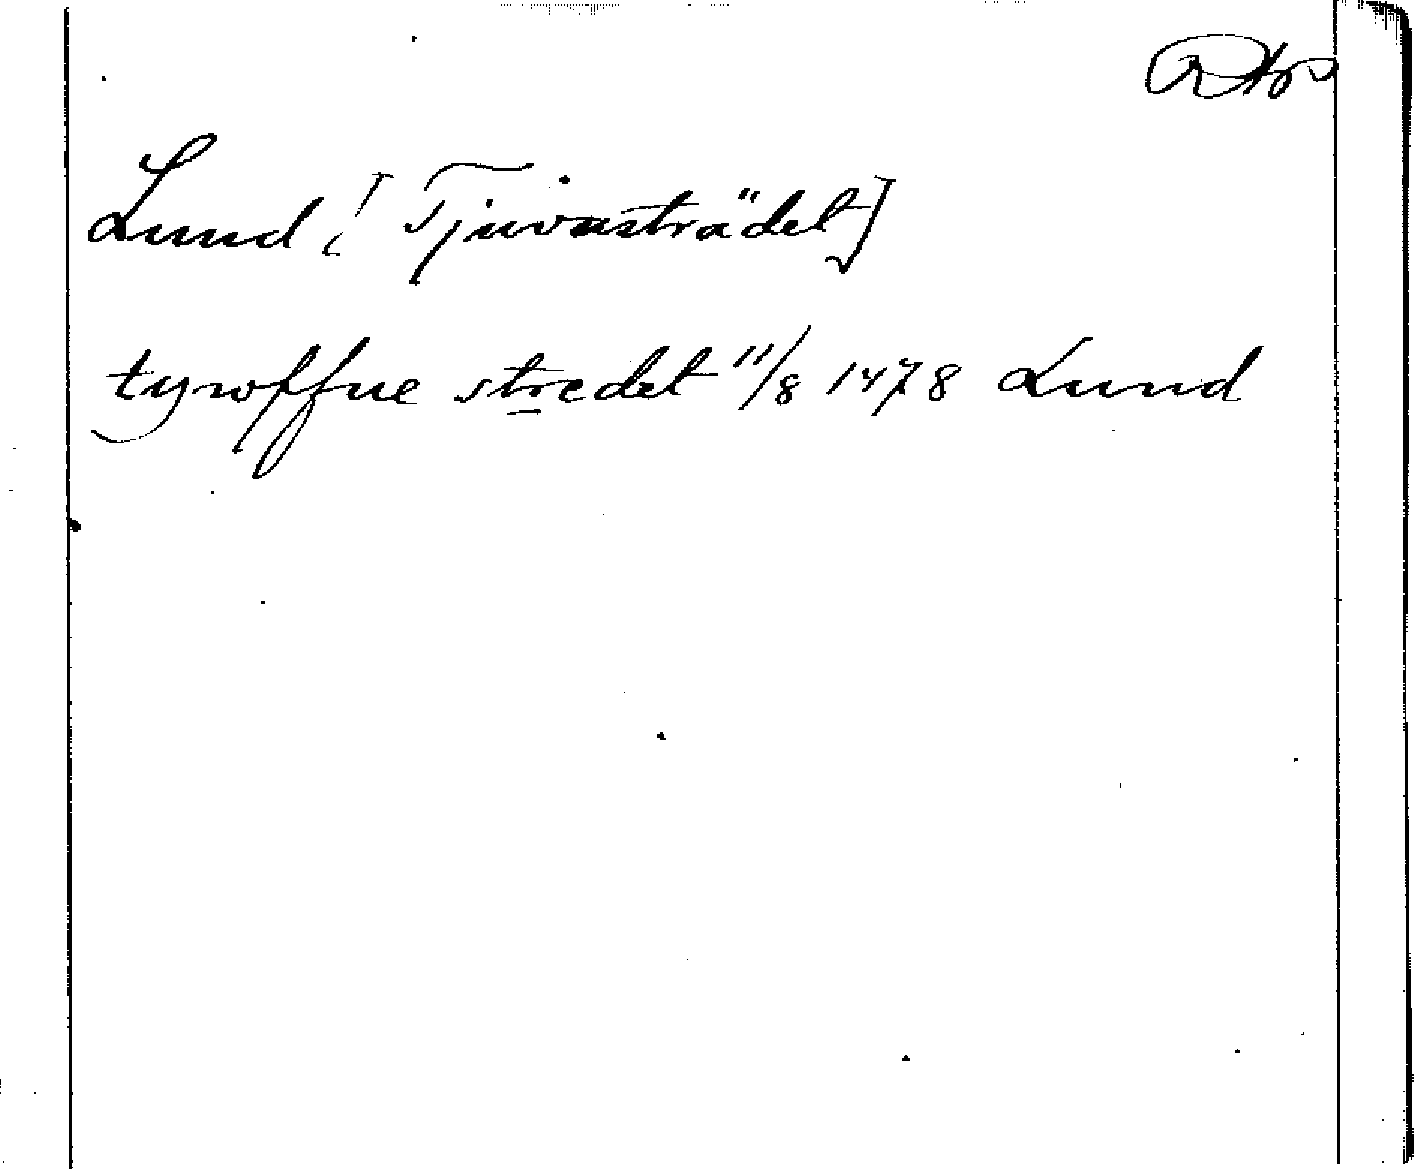 Lund [Tjuvasträdet]
tywffue stredet 11/8 1478 Lund